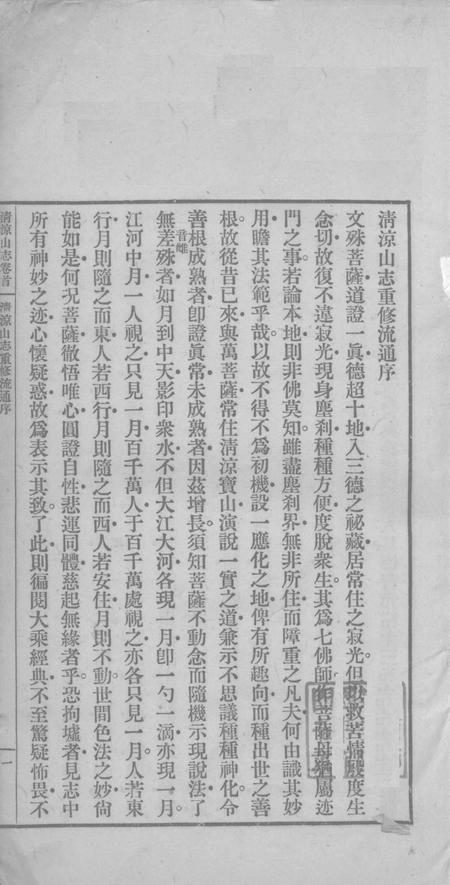 清涼山志重修流通序
文殊菩薩道證一眞德超十地入三德之祕藏居常住之寂光但以救苦情殷度生
念切故復不違寂光現身塵刹種種方便度脫衆生其爲七佛師作菩薩母猶屬迹
門之事若論本地則非佛莫知雖盡塵刹界無非所住而障重之凡夫何由識其妙
用瞻其法範乎哉以故不得不爲初機設一應化之地俾有所趣向而種出世之善
根故從昔已來與萬菩薩常住清涼寶山演說一實之道兼示不思議種種神化令
善根成熟者卽證眞常未成熟者因茲增長須知菩薩不動念而隨機示現說法了
無差殊音雌者如月到中天影印衆水不但大江大河各現一月卽一勺一滴亦現一月
江河中月一人視之只見一月百千萬人于百千萬處視之亦各只見一月人若東
行月則隨之而東人若西行月則隨之而西人若安住月則不動世間色法之妙尙
能如是何況菩薩徹悟唯心圓證自性悲運同體慈起無緣者乎恐拘墟者見志中
所有神妙之迹心懷疑惑故爲表示其致了此則徧閱大乘經典不至驚疑怖畏不
清涼山志卷首 清涼山志重修流通序 一